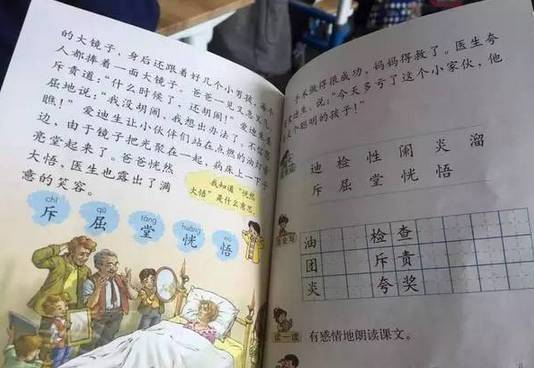 的大镜子，身后还跟着好几个小男孩，每个
人都捧着一面大镜子。爸爸一见又急
斥责道：“什么时候了，还胡闹！”爱迪生
屈地说：“我没胡闹，我想出办法了，
瞧！”爱迪生让小伙伴们站在点燃的油灯
边，由于镜子把光聚在一起，病床上一下子
亮堂起来了。爸爸恍然
大悟，医生也露出了满
意的笑容。
我知道“恍然
大悟”是什么意思。
chì qū táng huǎng wù
斥 屈 堂 恍 悟
手术做得很成功，妈妈得救了。医生夸
说：“今天多亏了这个小家伙，他
是个聪明的孩子！”
迪 检 性 闹 炎 溜
斥 屈 堂 恍 悟
油 检查
团 斥责
炎 夸奖
读一读
有感情地朗读课文。